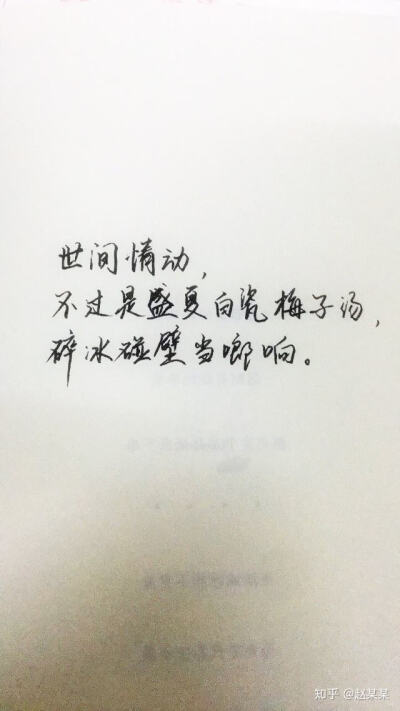 世间情动，
不过是盛夏白瓷梅子汤，
碎冰碰壁当啷响。
知乎 @赵某某